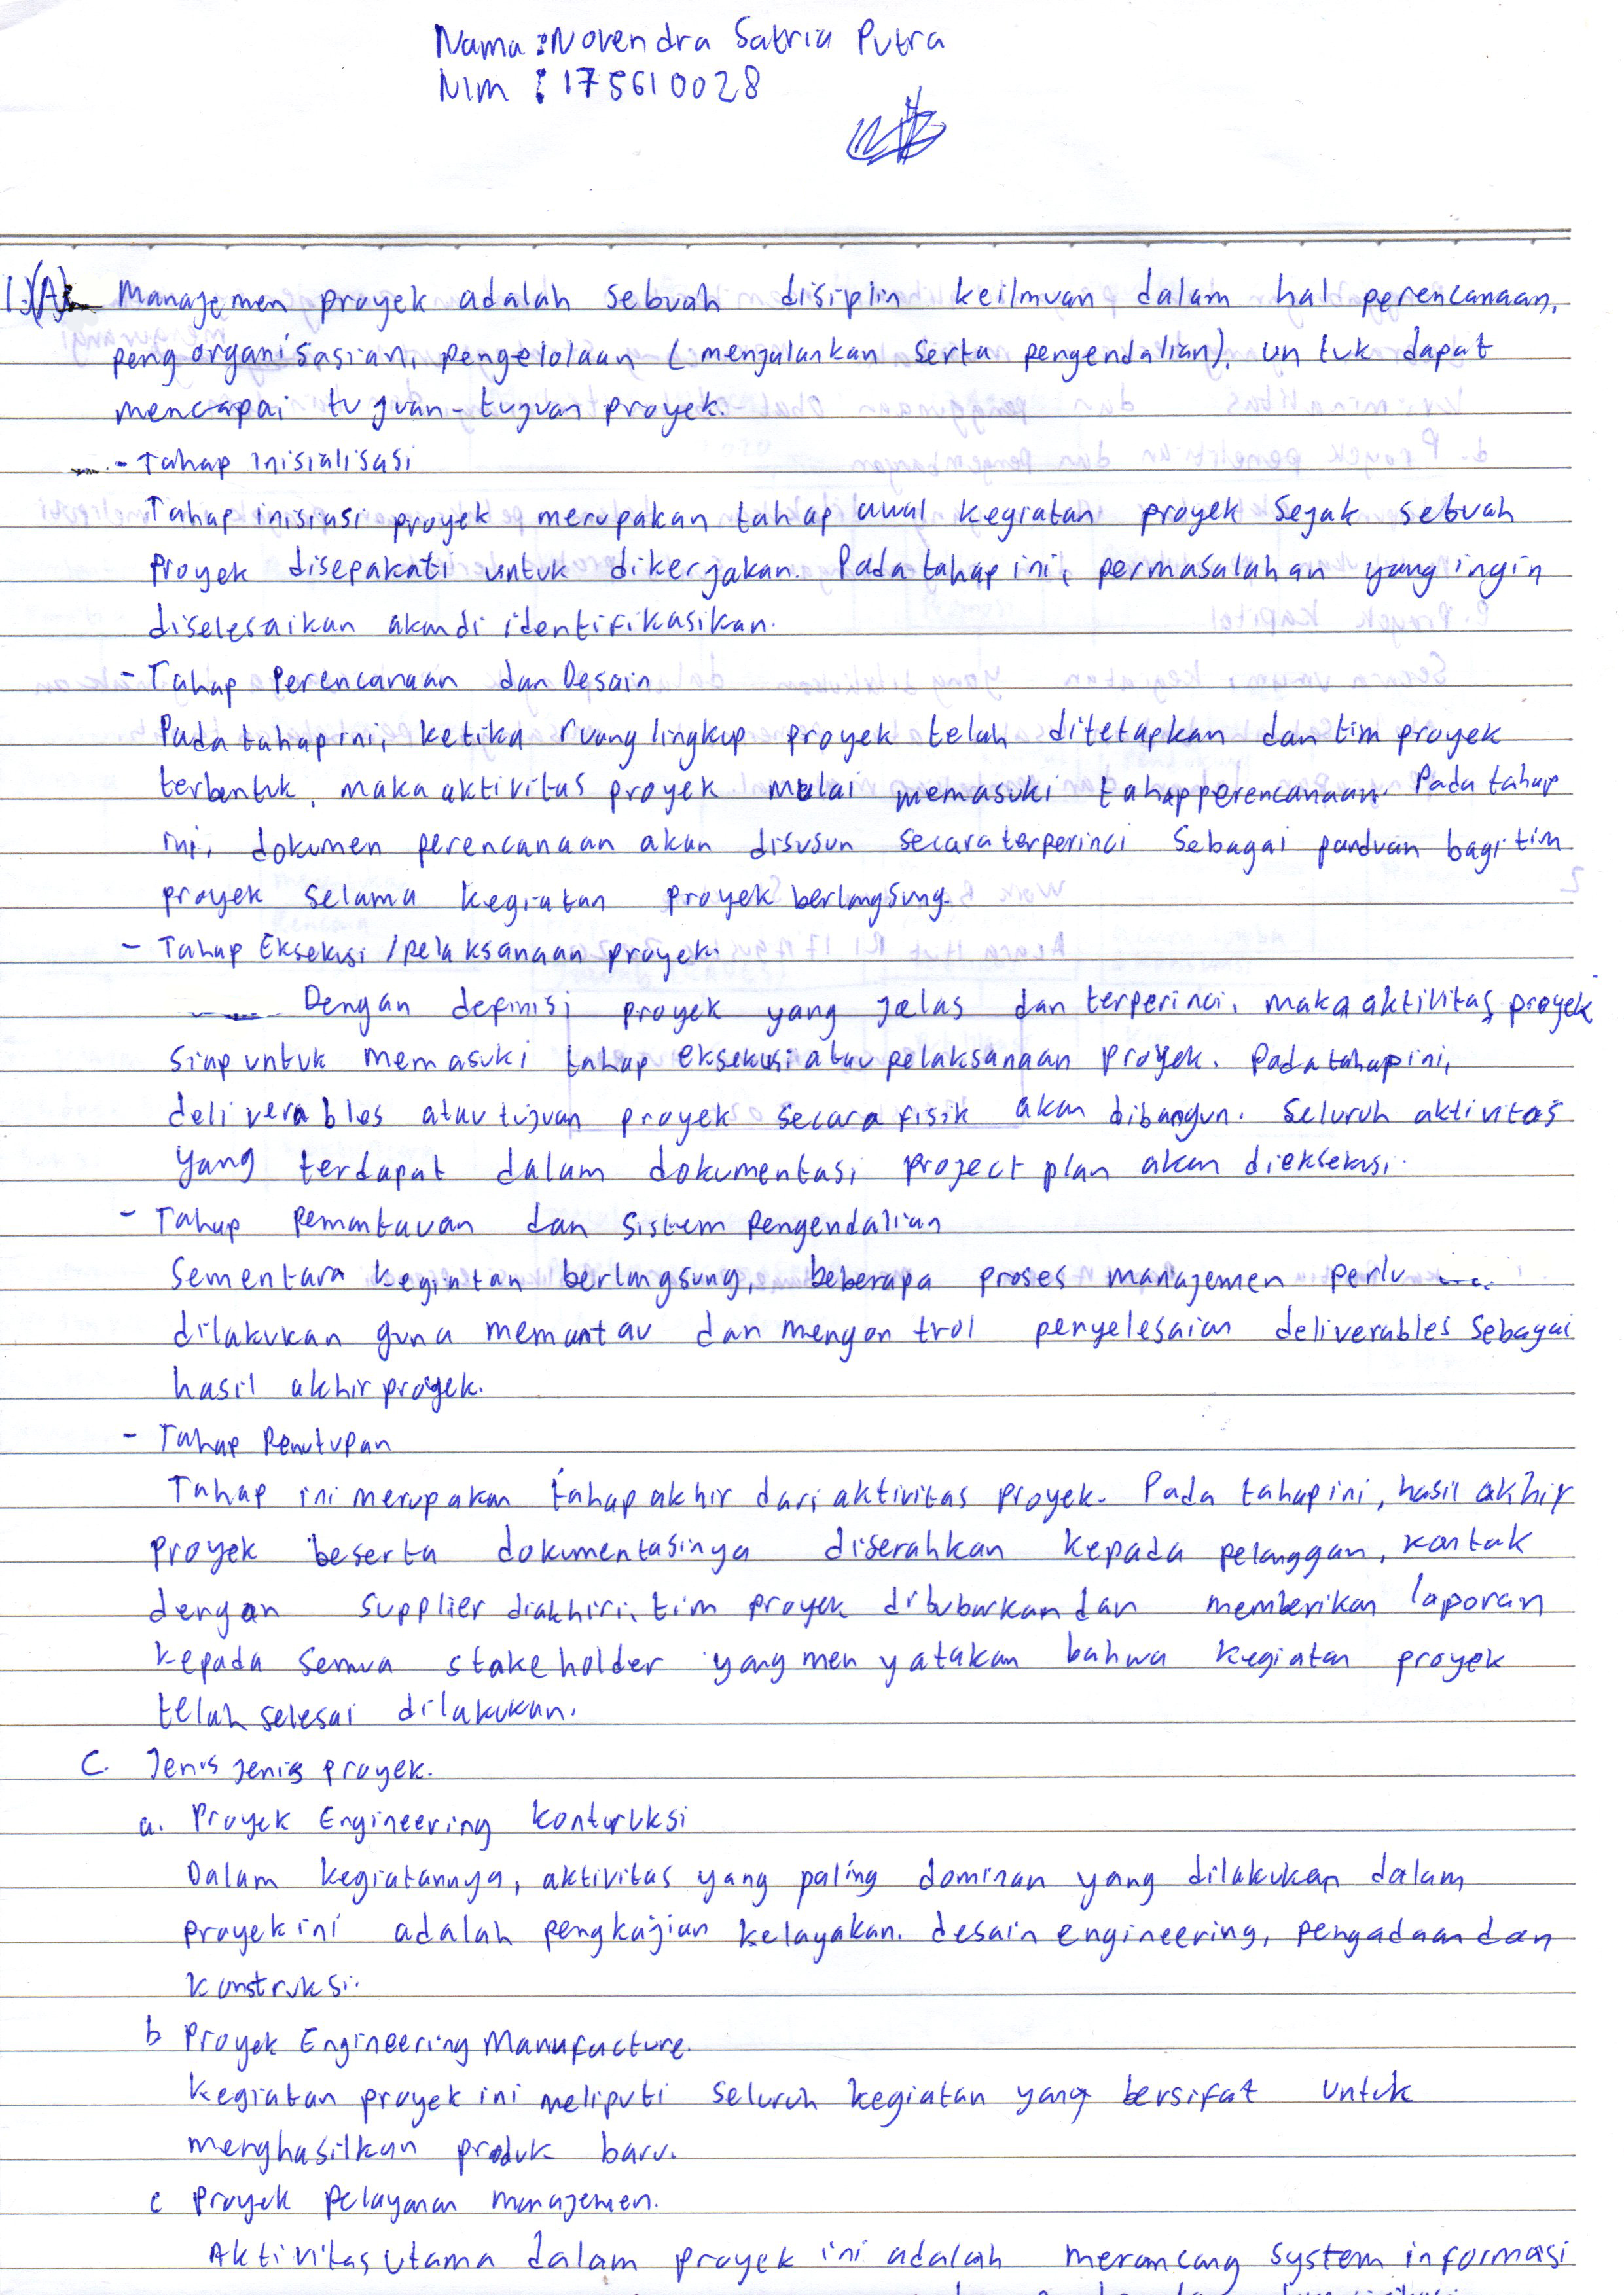 Nama : Novendra Satria Putra
NIM : 175610028
1.)(A) Manajemen proyek adalah sebuah disiplin keilmuan dalam hal perencanaan,
pengorganisasian, pengelolaan (menjalankan serta pengendalian), untuk dapat
mencapai tujuan-tujuan proyek.
- Tahap inisialisasi
Tahap inisiasi proyek merupakan tahap awal kegiatan proyek sejak sebuah
proyek disepakati untuk dikerjakan. Pada tahap ini, permasalahan yang ingin
diselesaikan akan di identifikasikan.
- Tahap Perencanaan dan Desain
Pada tahap ini, ketika ruang lingkup proyek telah ditetapkan dan tim proyek
terbentuk, maka aktivitas proyek mulai memasuki tahap perencanaan. Pada tahap
ini, dokumen perencanaan akan disusun secara terperinci sebagai panduan bagi tim
proyek selama kegiatan proyek berlangsung.
- Tahap Eksekusi / pelaksanaan proyek.
Dengan definisi proyek yang jelas dan terperinci, maka aktivitas proyek
siap untuk memasuki tahap eksekusi atau pelaksanaan proyek. Pada tahap ini,
deliverables atau tujuan proyek secara fisik akan dibangun. Seluruh aktivitas
yang terdapat dalam dokumentasi project plan akan dieksekusi.
- Tahap pemantauan dan sistem pengendalian
Sementara kegiatan berlangsung, beberapa proses manajemen perlu
dilakukan guna memantau dan mengontrol penyelesaian deliverables sebagai
hasil akhir proyek.
- Tahap Penutupan
Tahap ini merupakan tahap akhir dari aktivitas proyek. Pada tahap ini, hasil akhir
proyek beserta dokumentasinya diserahkan kepada pelanggan, kontak
dengan supplier diakhiri, tim proyek dibubarkan dan memberikan laporan
kepada semua stakeholder yang menyatakan bahwa kegiatan proyek
telah selesai dilakukan.
C. Jenis jenis proyek.
a. Proyek Engineering konturuksi
Dalam kegiatannya, aktivitas yang paling dominan yang dilakukan dalam
proyek ini adalah pengkajian kelayakan. desain engineering, pengadaan dan
konstruksi.
b Proyek Engineering Manufacture.
Kegiatan proyek ini meliputi seluruh kegiatan yang bersifat untuk
menghasilkan produk baru.
c proyek pelayanan manajemen.
Aktivitas utama dalam proyek ini adalah merancang system informasi